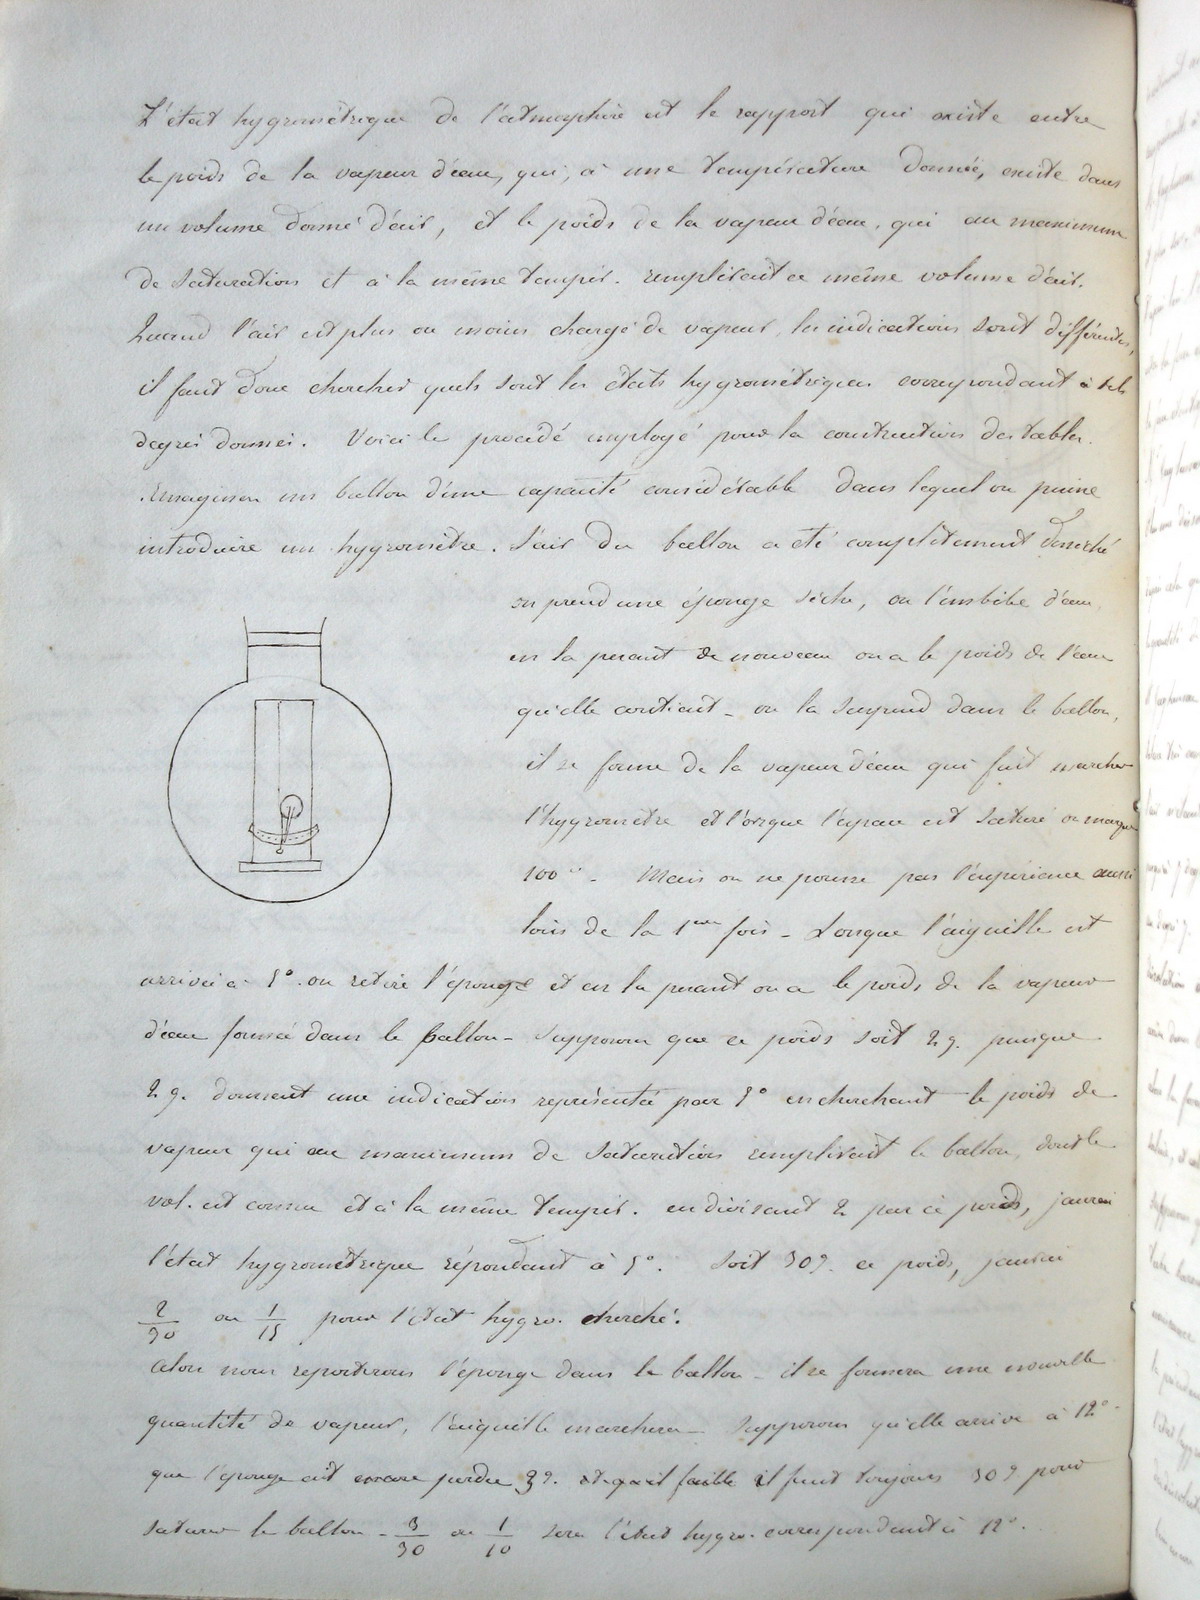 L'état hygrométrique de l'atmosphère est le rapport qui existe entre
le poids de la vapeur d'eau, qui, à une température donnée, existe dans
un volume donné d'air, et le poids de la vapeur d'eau, qui au maximum
de saturation et à la même tempér. remplirait ce même volume d'air.
Quand l'air est plus ou moins chargé de vapeur, les indications sont différentes,
il faut donc chercher quels sont les états hygrométriques correspondant à tels
degrés donnés. Voici le procédé employé pour la construction des tables.
Imaginons un ballon d'une capacité considérable dans lequel on puisse
introduire un hygromètre. L'air du ballon a été complètement desséché
on prend une éponge sèche, on l'imbibe d'eau,
en la pesant de nouveau on a le poids de l'eau
qu'elle contient - on la suspend dans le ballon,
il se forme de la vapeur d'eau qui fait marcher
l'hygromètre et l'orsque l'espace est saturé on marque
100° - Mais on ne pousse pas l'expérience aussi
loin de la 1ere fois - Lorsque l'aiguille est
arrivée à 5° on retire l'éponge et en la pesant on a le poids de la vapeur
d'eau formée dans le ballon - supposons que ce poids soit 2 g. puisque
2 g. donnent une indication représentée par 5° en cherchant le poids de
vapeur qui au maximum de saturation remplirait le ballon, dont le
vol. est connu et à la même tempér. en divisant 2 par ce poids, j'aurai
l'état hygrométrique répondant à 5°. Soit 30 g. ce poids, j'aurai
2/30 ou 1/15 pour l'état hygro. cherché.
Alors nous reporterons l'éponge dans le ballon - il se formera une nouvelle
quantité de vapeur, l'aiguille marchera - supposons qu'elle arrive à 12°
que l'éponge ait encore perdu 3 g. il faut toujours 30 g pour
saturer le ballon - 3/30 ou 1/10 sera l'état hygro. correspondant à 12°.